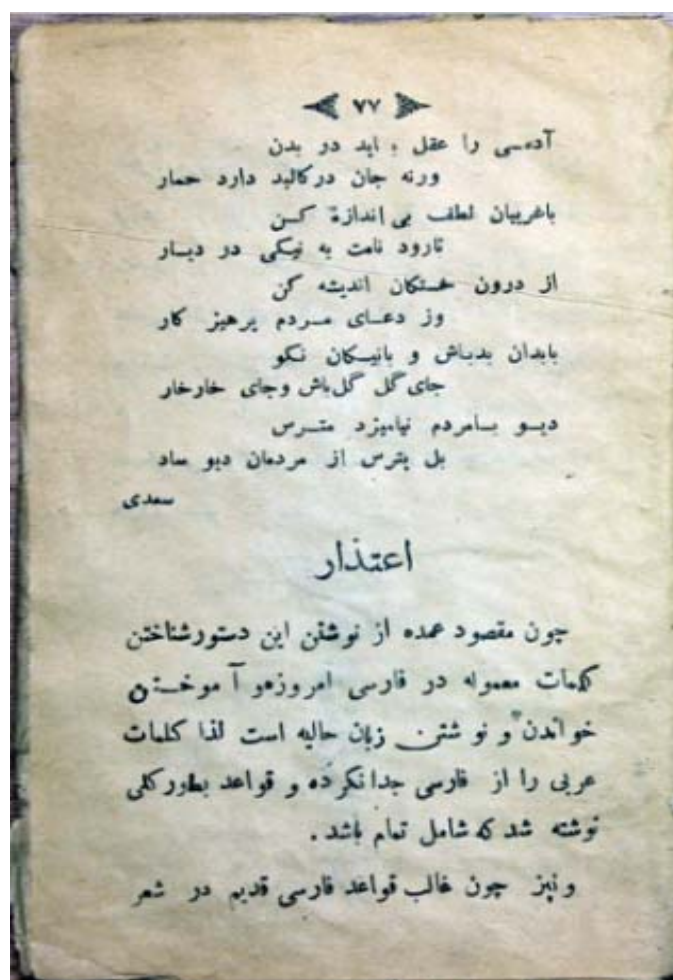 ۷۷
آدمی را عقل باید در بدن
ورنه جان درکالبد دارد حمار
باغریبان لطف بی اندازهٔ کن
تارود نامت به نیکی در دیار
از درون خستکان اندیشه کن
وز دعای مردم پرهیز کار
بابدان بدباش و بانیکان نکو
جای گل گل باش وجای خارخار
دیو بامردم نیامیزد مترس
بل بترس از مردمان دیو سار
سعدی
اعتذار
چون مقصود عمده از نوشتن این دستورشناختن
کلمات معموله در فارسی امروزه و آموختن
خواندن و نوشتن زبان حالیه است لذا کلمات
عربی را از فارسی جدا نکرده و قواعد بطورکلی
نوشته شد که شامل تمام باشد .
ونیز چون غالب قواعد فارسی قدیم در شعر